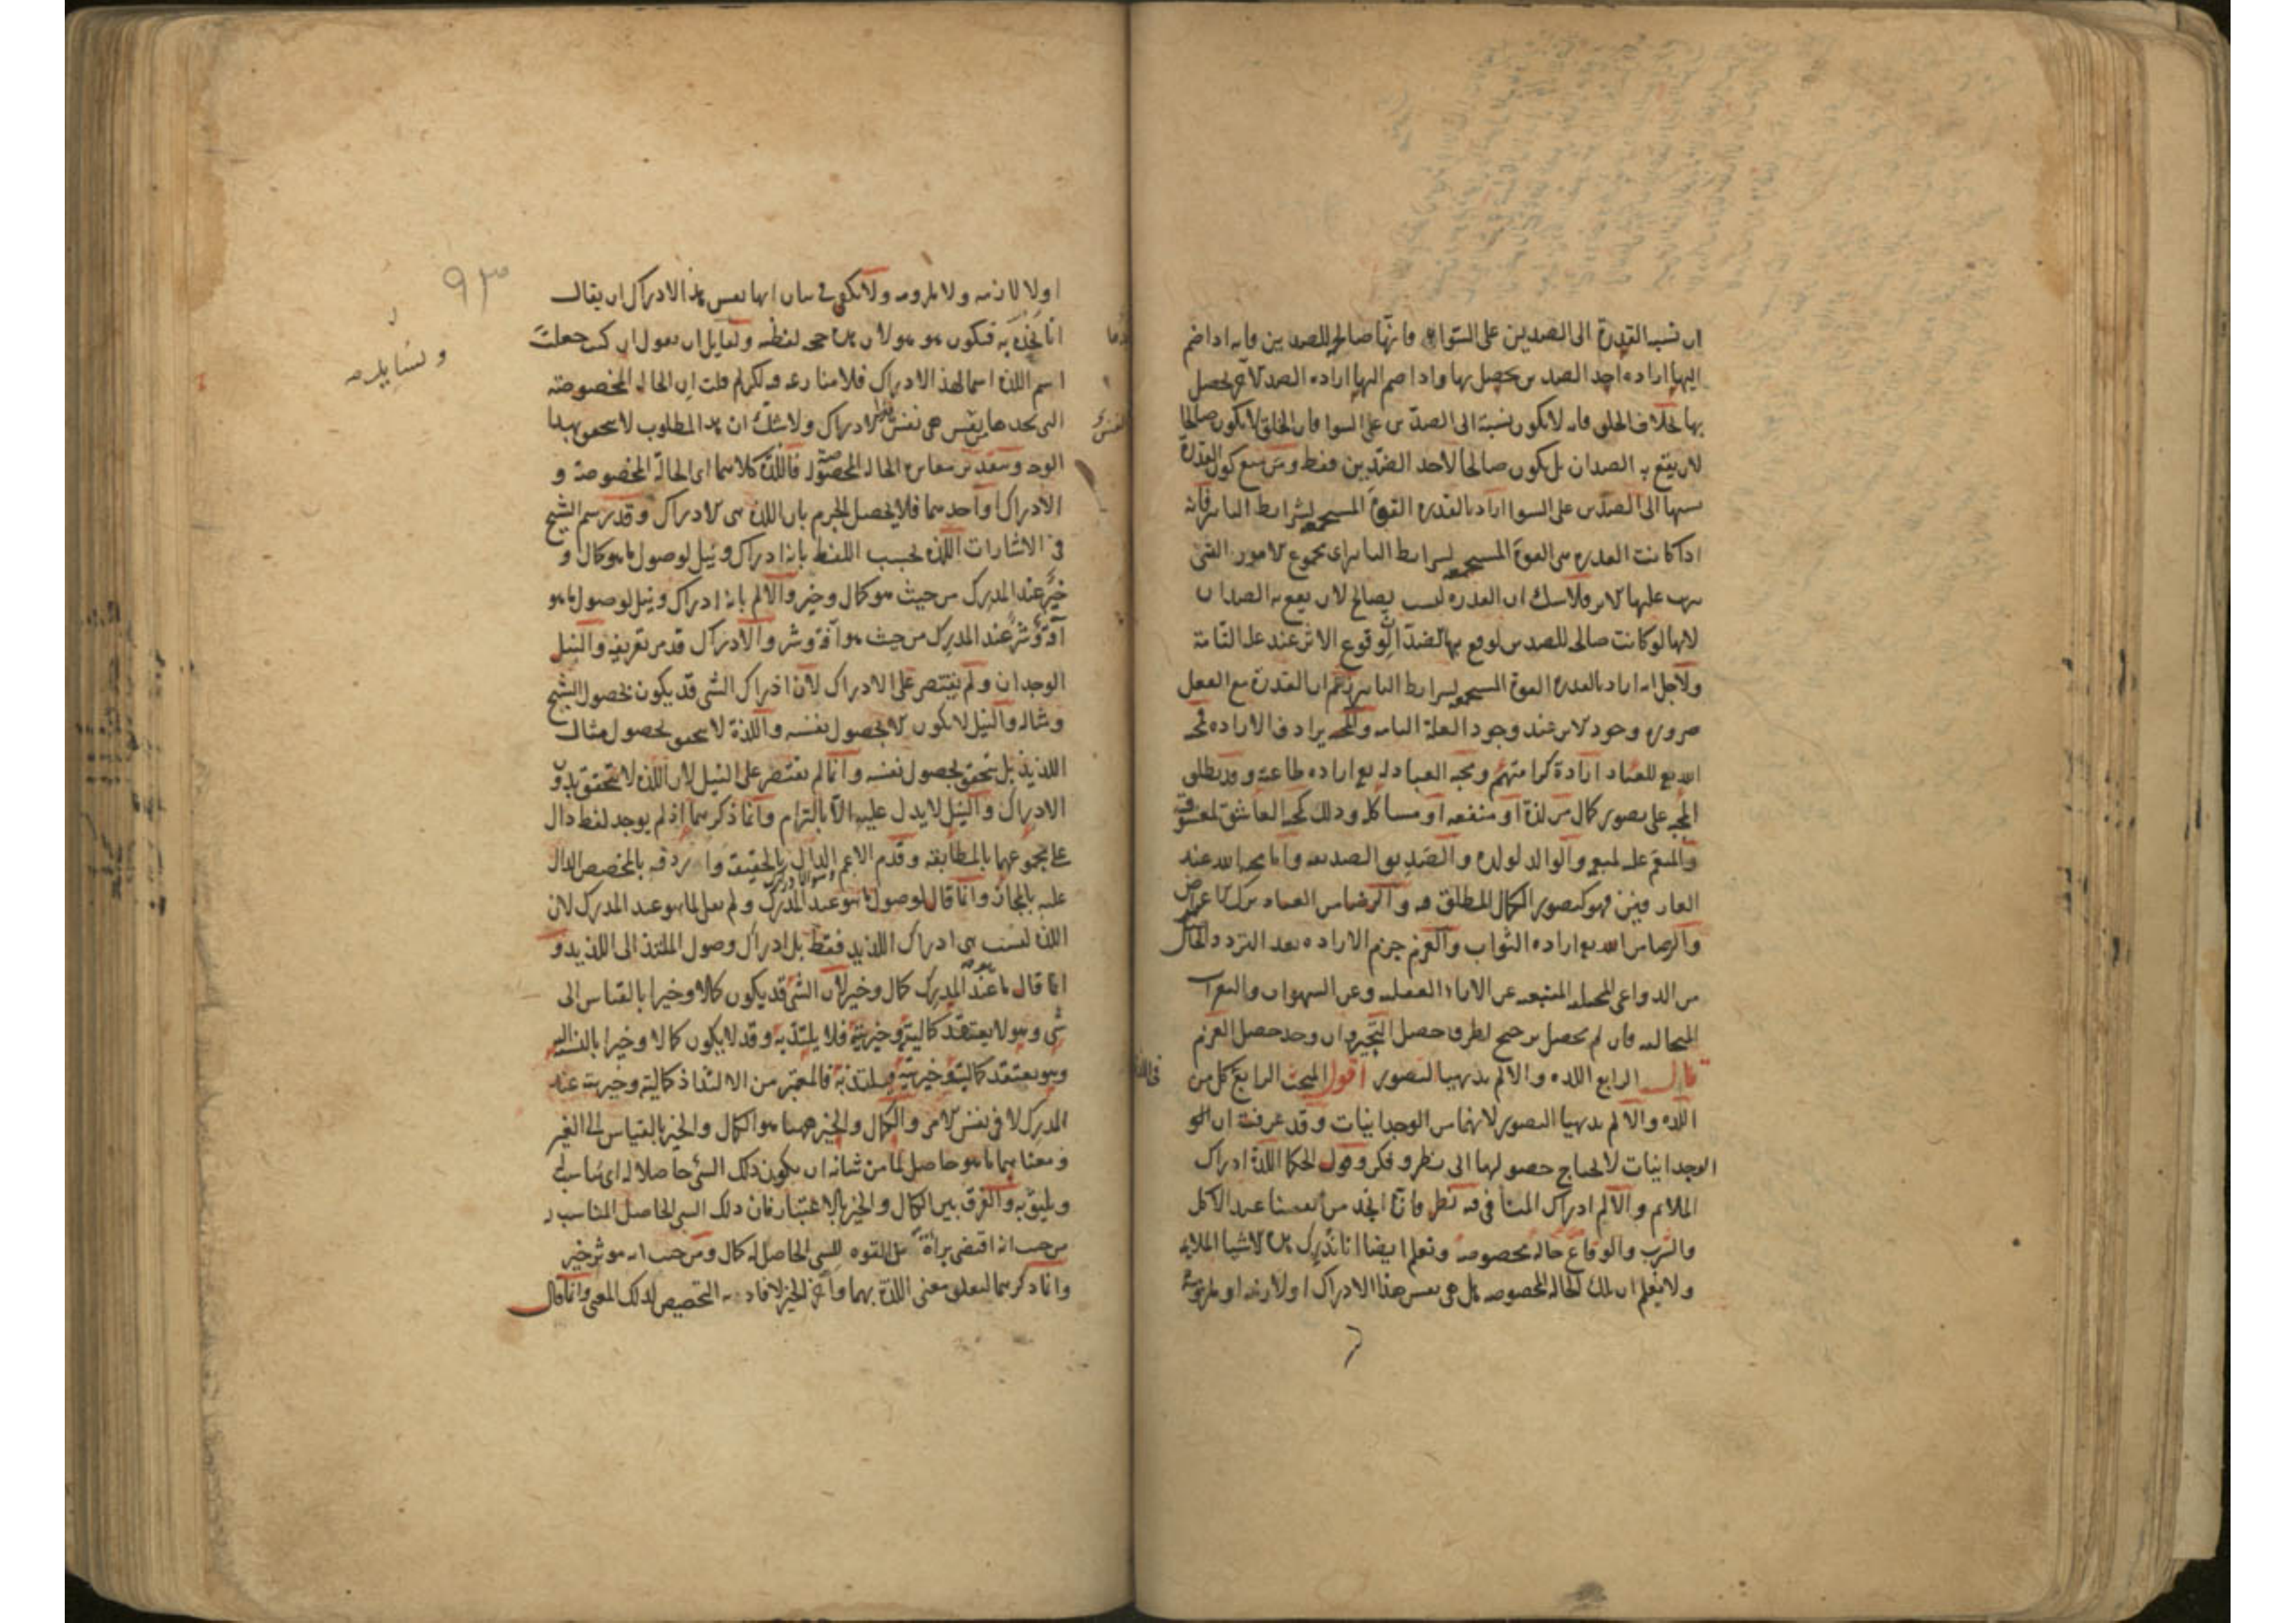 ان نسبة القدرة الى الضدين على السواء فانها صالحة للضدين فانه اذا ضم
اليها ارادة احد الضدين يحصل بها واذا ضم اليها ارادة الضد الآخر يحصل
بها بخلاف الخلق فانه لا يكون نسبته الى الضدين على السواء فان الخلق لا يكون صالحا
لان يقع به الضدان بل يكون صالحا لاحد الضدين فقط ومن منع كون القدرة
نسبتها الى الضدين على السواء اراد بالقدرة القوة المستجمعة لشرايط التاثير فانه
اذا كانت القدرة هى القوة المستجمعة لشرايط التاثير اى مجموع الامور التى
يترتب عليها الاثر فلا شك ان القدرة ليست بصالحة لان يقع به الضدان
لانها لو كانت صالحة للضدين لوقع بها الضدان لوقوع الاثر عند علته التامة
ولاجل انه اراد بالقدرة القوة المستجمعة لشرايط التاثير زعم ان القدرة مع الفعل
ضرورة وجود الاثر عند وجود العلة التامة والمحبة يرادف الارادة فمحبة
الله تع للعباد ارادة كرامتهم ومحبة العباد له تع ارادة طاعته وقد يطلق
المحبة على تصور كمال من لذة او منفعة او مشاكلة وذلك كمحبة العاشق لمعشوقه
والمنعم عليه لمنعمه والوالد لولده والصديق لصديقه واما محبة الله عند
العارفين فهو كتصور الكمال المطلق فيه والرضا من العباد ترك الاعتراض
والرضا من الله تع ارادة الثواب والعزم جزم الارادة بعد التردد الحاصل
من الدواعى المختلفة المنبعثة عن الاراء العقلية وعن الشهوات والنفرات
المتخالفة فان لم يحصل ترجيح لطرف حصل التحير وان وجد حصل العزم
قال الرابع اللذة والالم بديهيا التصور اقول المبحث الرابع كل من
اللذة والالم بديهيا التصور لانهما من الوجدانيات وقد عرفت ان
الوجدانيات لا يحتاج حصولها الى نظر وفكر وقول الحكما اللذة ادراك
الملائم والالم ادراك المنافى فيه نظر فانا نجد من انفسنا عند الاكل
والشرب والوقاع حالة مخصوصة ونعلم ايضا انا ندرك هذه الاشيا الملايمة
ولا نعلم ان تلك الحالة المخصوصة هل هى نفس هذا الادراك او لازمه او ملزومه
٩٣
اولا لازمه ولا ملزومه ولا يكفى فى بيان انها نفس هذا الادراك ان يقال
انا نجده به فيكون هو هو لان هذه حجة لفظية ولقايل ان يقول ان كنت جعلت
اسم اللذة اسما لهذا الادراك فلا منازعة فيه لكن لم قلت ان الحالة المخصوصة
التى نجدها من النفس هى نفس الادراك ولا شك ان هذا المطلوب لا يتحقق بهذا
الوجه وبتقدير تغاير الحالة المخصوصة فاللذة كلاهما اى الحالة المخصوصة و
الادراك او احدهما فلا يحصل الجزم بان اللذة هى الادراك وقد رسم الشيخ
فى الاشارات اللذة بحسب اللفظ بانها ادراك ونيل لوصول ما هو كمال و
خير عند المدرك من حيث هو كمال وخير والالم بانه ادراك ونيل لوصول ما هو
آفة وشر عند المدرك من حيث هو آفة وشر والادراك قد مر تعريفه والنيل
الوجدان ولم يقتصر على الادراك لان ادراك الشى قد يكون بحصول الشبح
ومثاله والنيل لا يكون الا بحصول نفسه واللذة لا يتحقق بحصول مثال
اللذيذ بل يتحقق بحصول نفسه وانما لم يقتصر على النيل لان اللذة لا تتحقق بدون
الادراك والنيل لا يدل عليه الا بالتزام وانما ذكرهما اذ لم يوجد لفظ دال
على مجموعهما بالمطابقة وقدم الاعم الدال بالحقيقة واردفه بالمخصص الدال
عليه بالمجاز وانما قال لوصول ما هو عند المدرك ولم يقل لما هو عند المدرك لان
اللذة ليست هى ادراك اللذيذ فقط بل ادراك وصول الملتذ الى اللذيذ و
انما قال ما هو عند المدرك كمال وخير لان الشى قد يكون كمالا وخيرا بالقياس الى
شى وهو لا يعتقد كماليته وخيريته فلا يلتذ به وقد لا يكون كمالا وخيرا بالنسبة اليه
وهو يعتقد كماليته وخيريته فيلتذ به فالمعتبر من الالتذاذ كماليته وخيريته عند
المدرك لا فى نفس الامر والكمال والخير ههنا هو الكمال والخير بالقياس الى الغير
ومعناهما ما هو حاصل لما من شانه ان يكون ذلك الشى حاصلا له اى يناسبه
ويليق به والفرق بين الكمال والخير بالاعتبار فان ذلك الشى الحاصل المناسب
من حيث انه اقتضى براءة من القوة للشى الحاصل له كمال ومن حيث انه موثر خير
وانما ذكرهما لتعلق معنى اللذة بهما واخر الخير لافادته التخصيص لذلك المعنى وانما قال